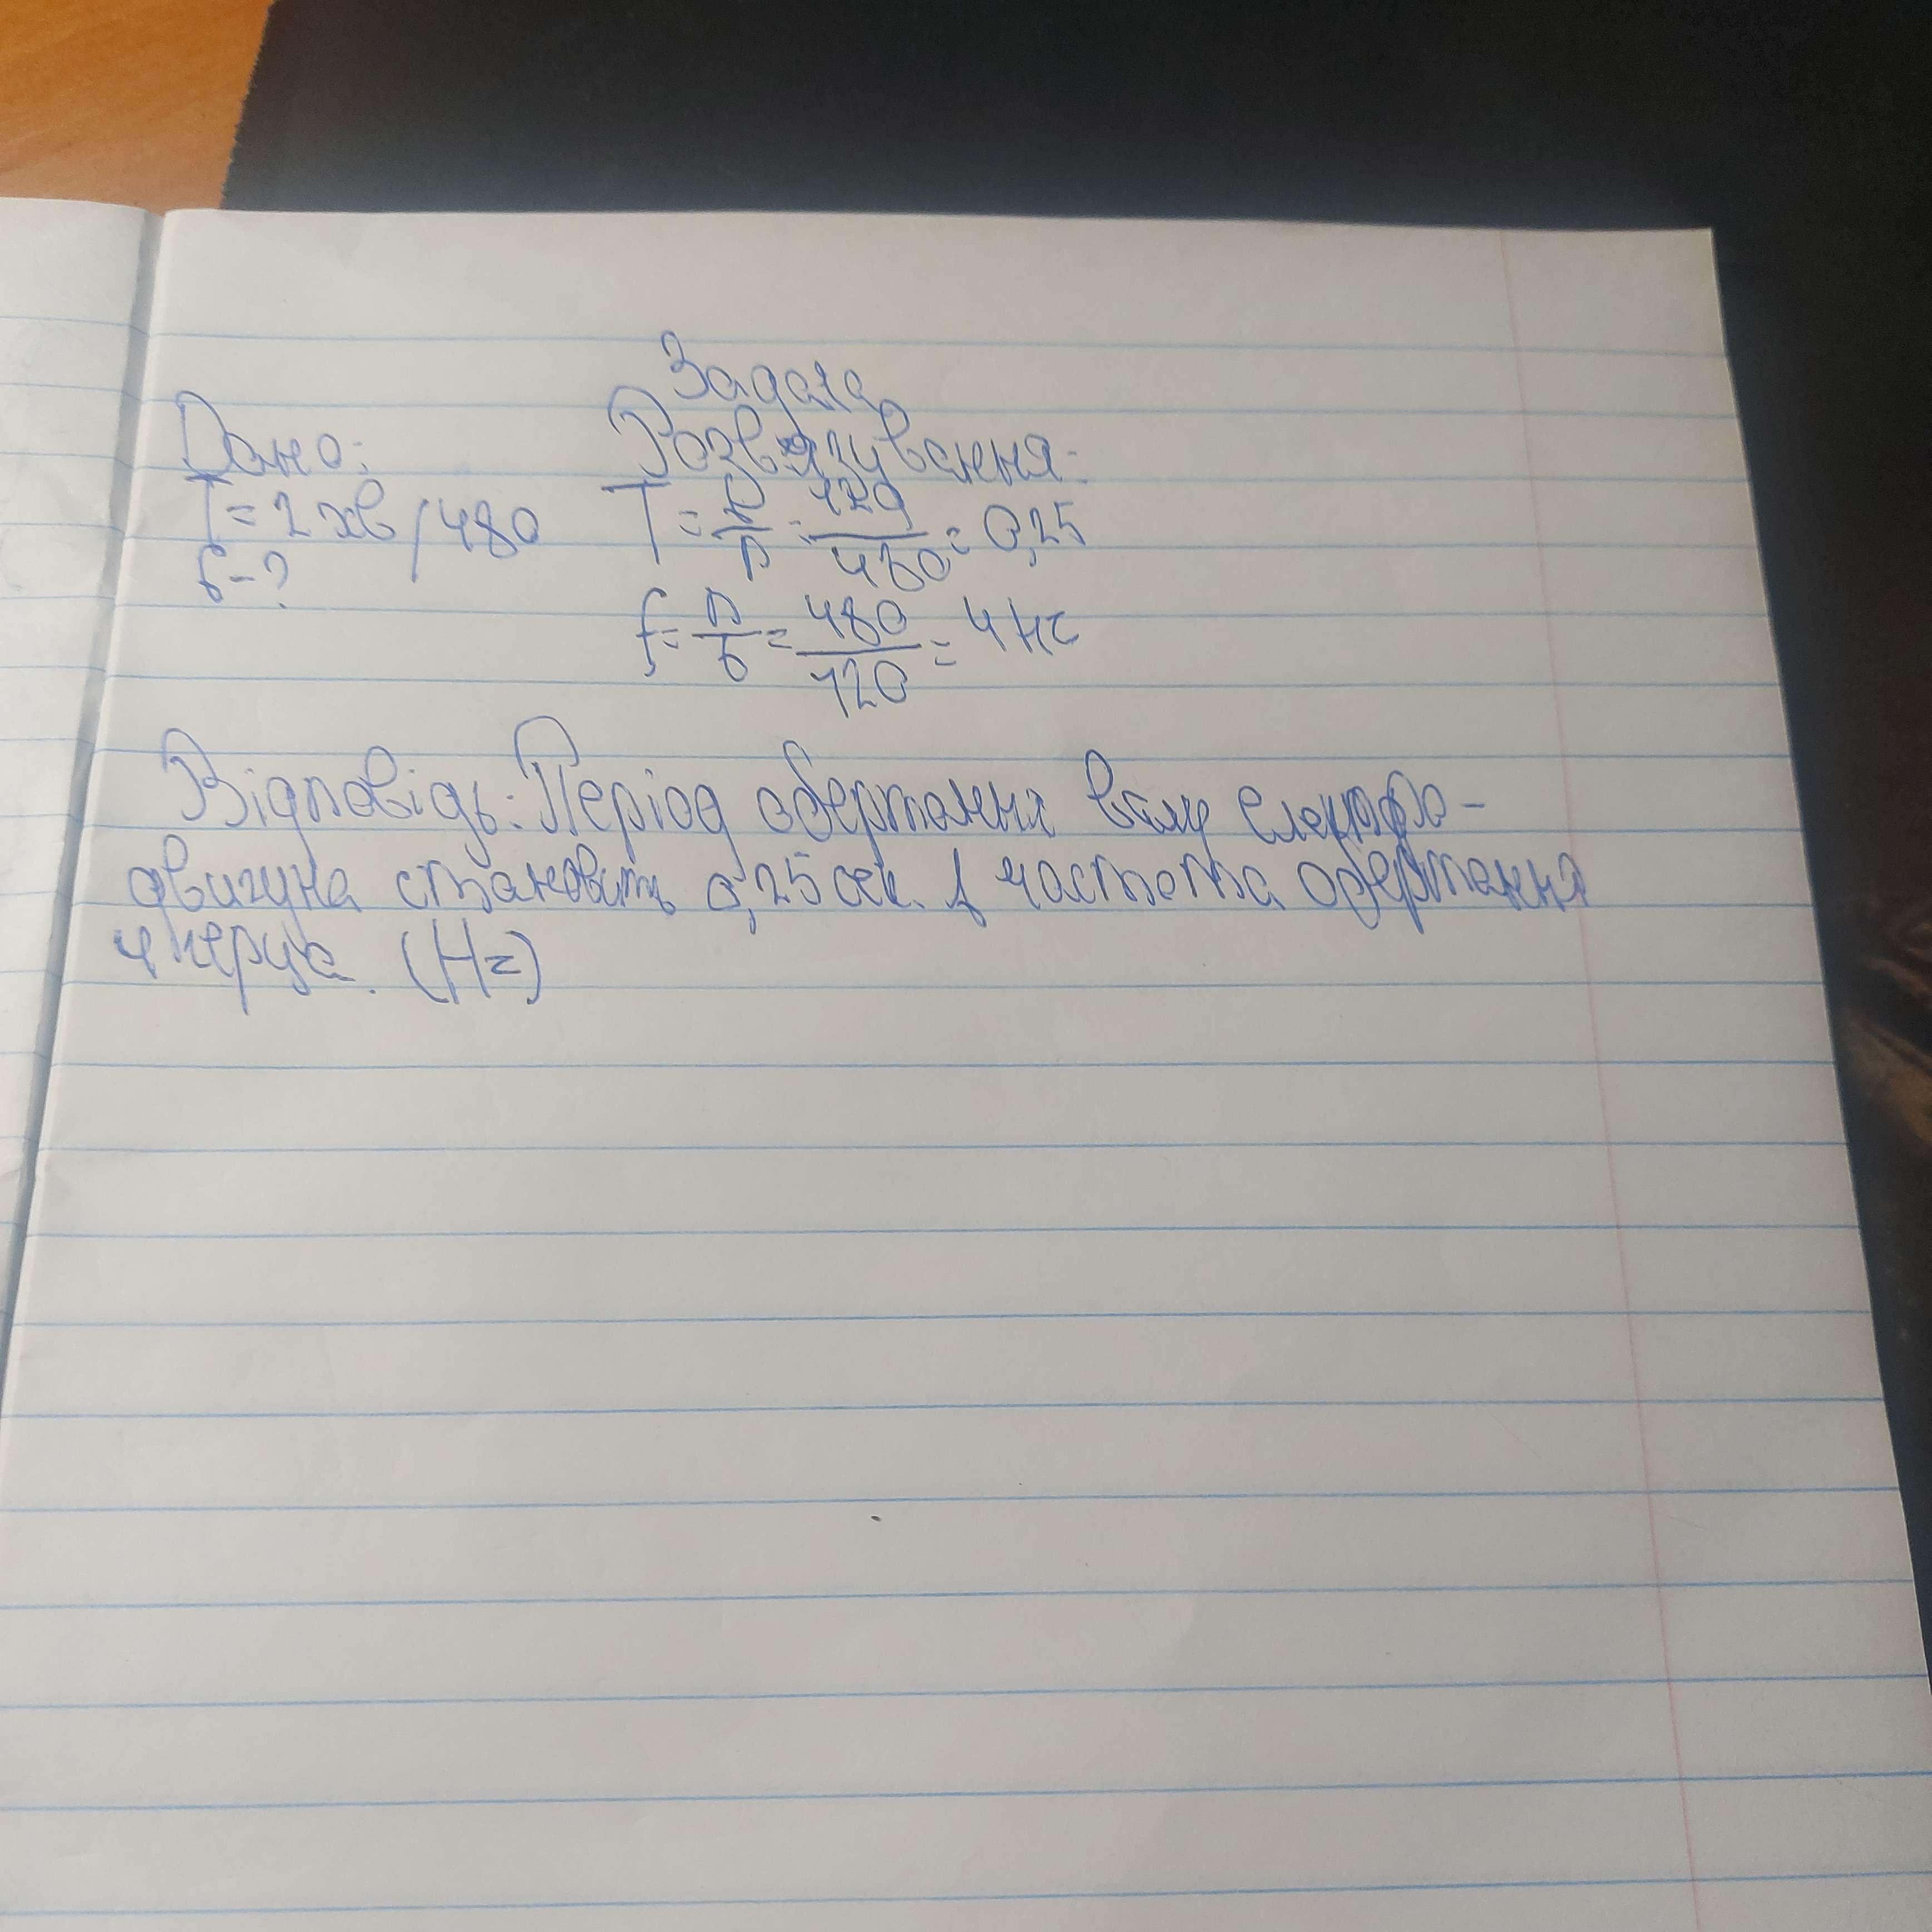 Задача
Дано: Розвязування:
T = 2 хв / 480 T = t/n = 120/480 = 0,25
f - ? f = n/t = 480/120 = 4 Нz
Відповідь: Період обертання валу електро-
двигуна становить 0,25 сек. а частота обертання
4 герца. (Hz)